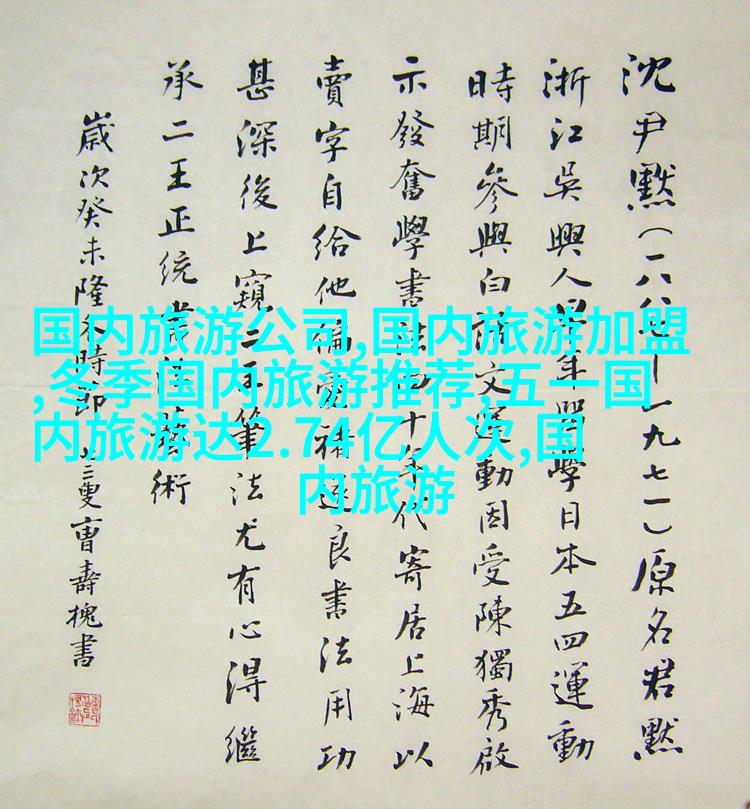 沈尹黙（一八八七—一九七一）原名君黙
浙江吳興人早年留學日本五四運動
時期參與白話文運動因受陳獨秀啟
示發奮學書法四十年代寄居上海以
賣字自給他偏愛褚遂良書法用功
甚深後上窺二王筆法尤有心得繼
承二王正統書法藝術
歲次癸未隆冬時節 叟曹壽槐書
国内旅游公司,国内旅游加盟
,冬季国内旅游推荐,五一国
内旅游达2.74亿人次,国
内旅游